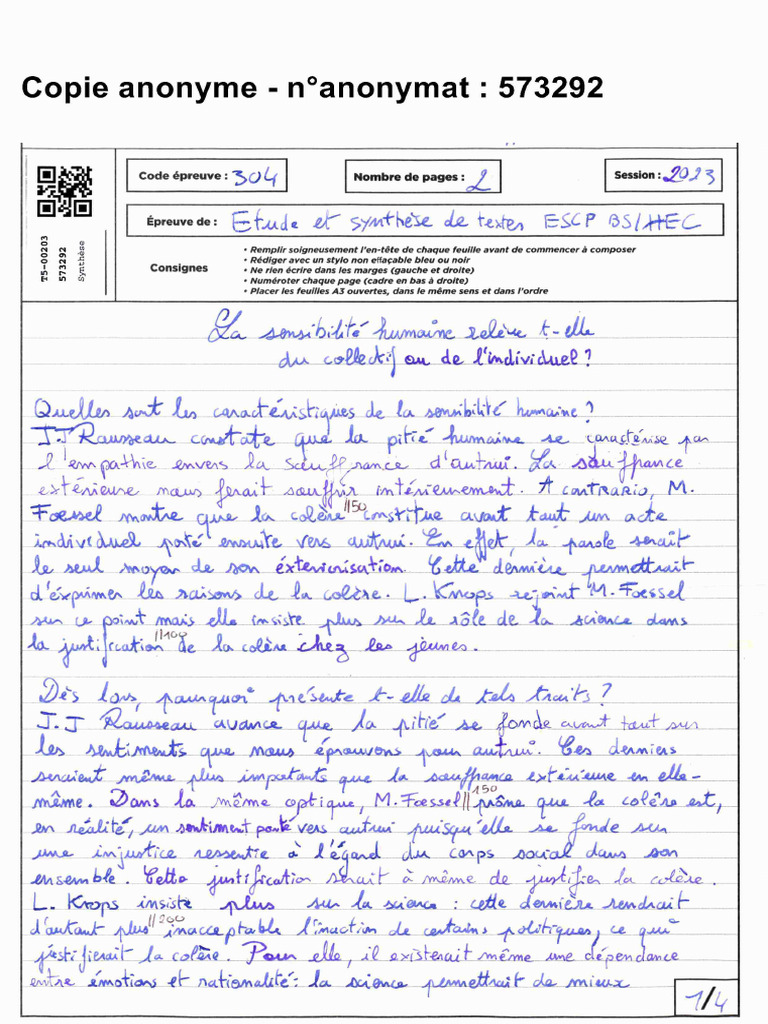 Copie anonyme - n°anonymat : 573292
Code épreuve : 304
Nombre de pages : 2
Session : 2023
Épreuve de : Etude et synthèse de textes ESCP BS/HEC
T5-00203
573292
Synthèse
Consignes
• Remplir soigneusement l'en-tête de chaque feuille avant de commencer à composer
• Rédiger avec un stylo non effaçable bleu ou noir
• Ne rien écrire dans les marges (gauche et droite)
• Numéroter chaque page (cadre en bas à droite)
• Placer les feuilles A3 ouvertes, dans le même sens et dans l'ordre
La sensibilité humaine relève t-elle
du collectif ou de l'individuel ?
Quelles sont les caractéristiques de la sensibilité humaine ?
J.J Rousseau constate que la pitié humaine se caractérise par
l'empathie envers la souffrance d'autrui. La souffrance
extérieure nous ferait souffrir intérieurement. A CONTRARIO, M.
Foessel montre que la colère //50 constitue avant tout un acte
individuel porté ensuite vers autrui. En effet, la parole serait
le seul moyen de son extériorisation. Cette dernière permettrait
d'exprimer les raisons de la colère. L. Knops rejoint M. Foessel
sur ce point mais elle insiste plus sur le rôle de la science dans
la justification //100 de la colère chez les jeunes.
Dès lors, pourquoi présente t-elle de tels traits ?
J.J Rousseau avance que la pitié se fonde avant tout sur
les sentiments que nous éprouvons pour autrui. Ces derniers
seraient même plus importants que la souffrance extérieure en elle-
même. Dans la même optique, M. Foessel //150 prône que la colère est,
en réalité, un sentiment porté vers autrui puisqu'elle se fonde sur
une injustice ressentie à l'égard du corps social dans son
ensemble. Cette justification serait à même de justifier la colère.
L. Knops insiste plus sur la science : cette dernière rendrait
d'autant plus //200 inacceptable l'inaction de certains politiques, ce qui
justifierait la colère. Pour elle, il existerait même une dépendance
entre émotions et rationalité : la science permettrait de mieux
1/4